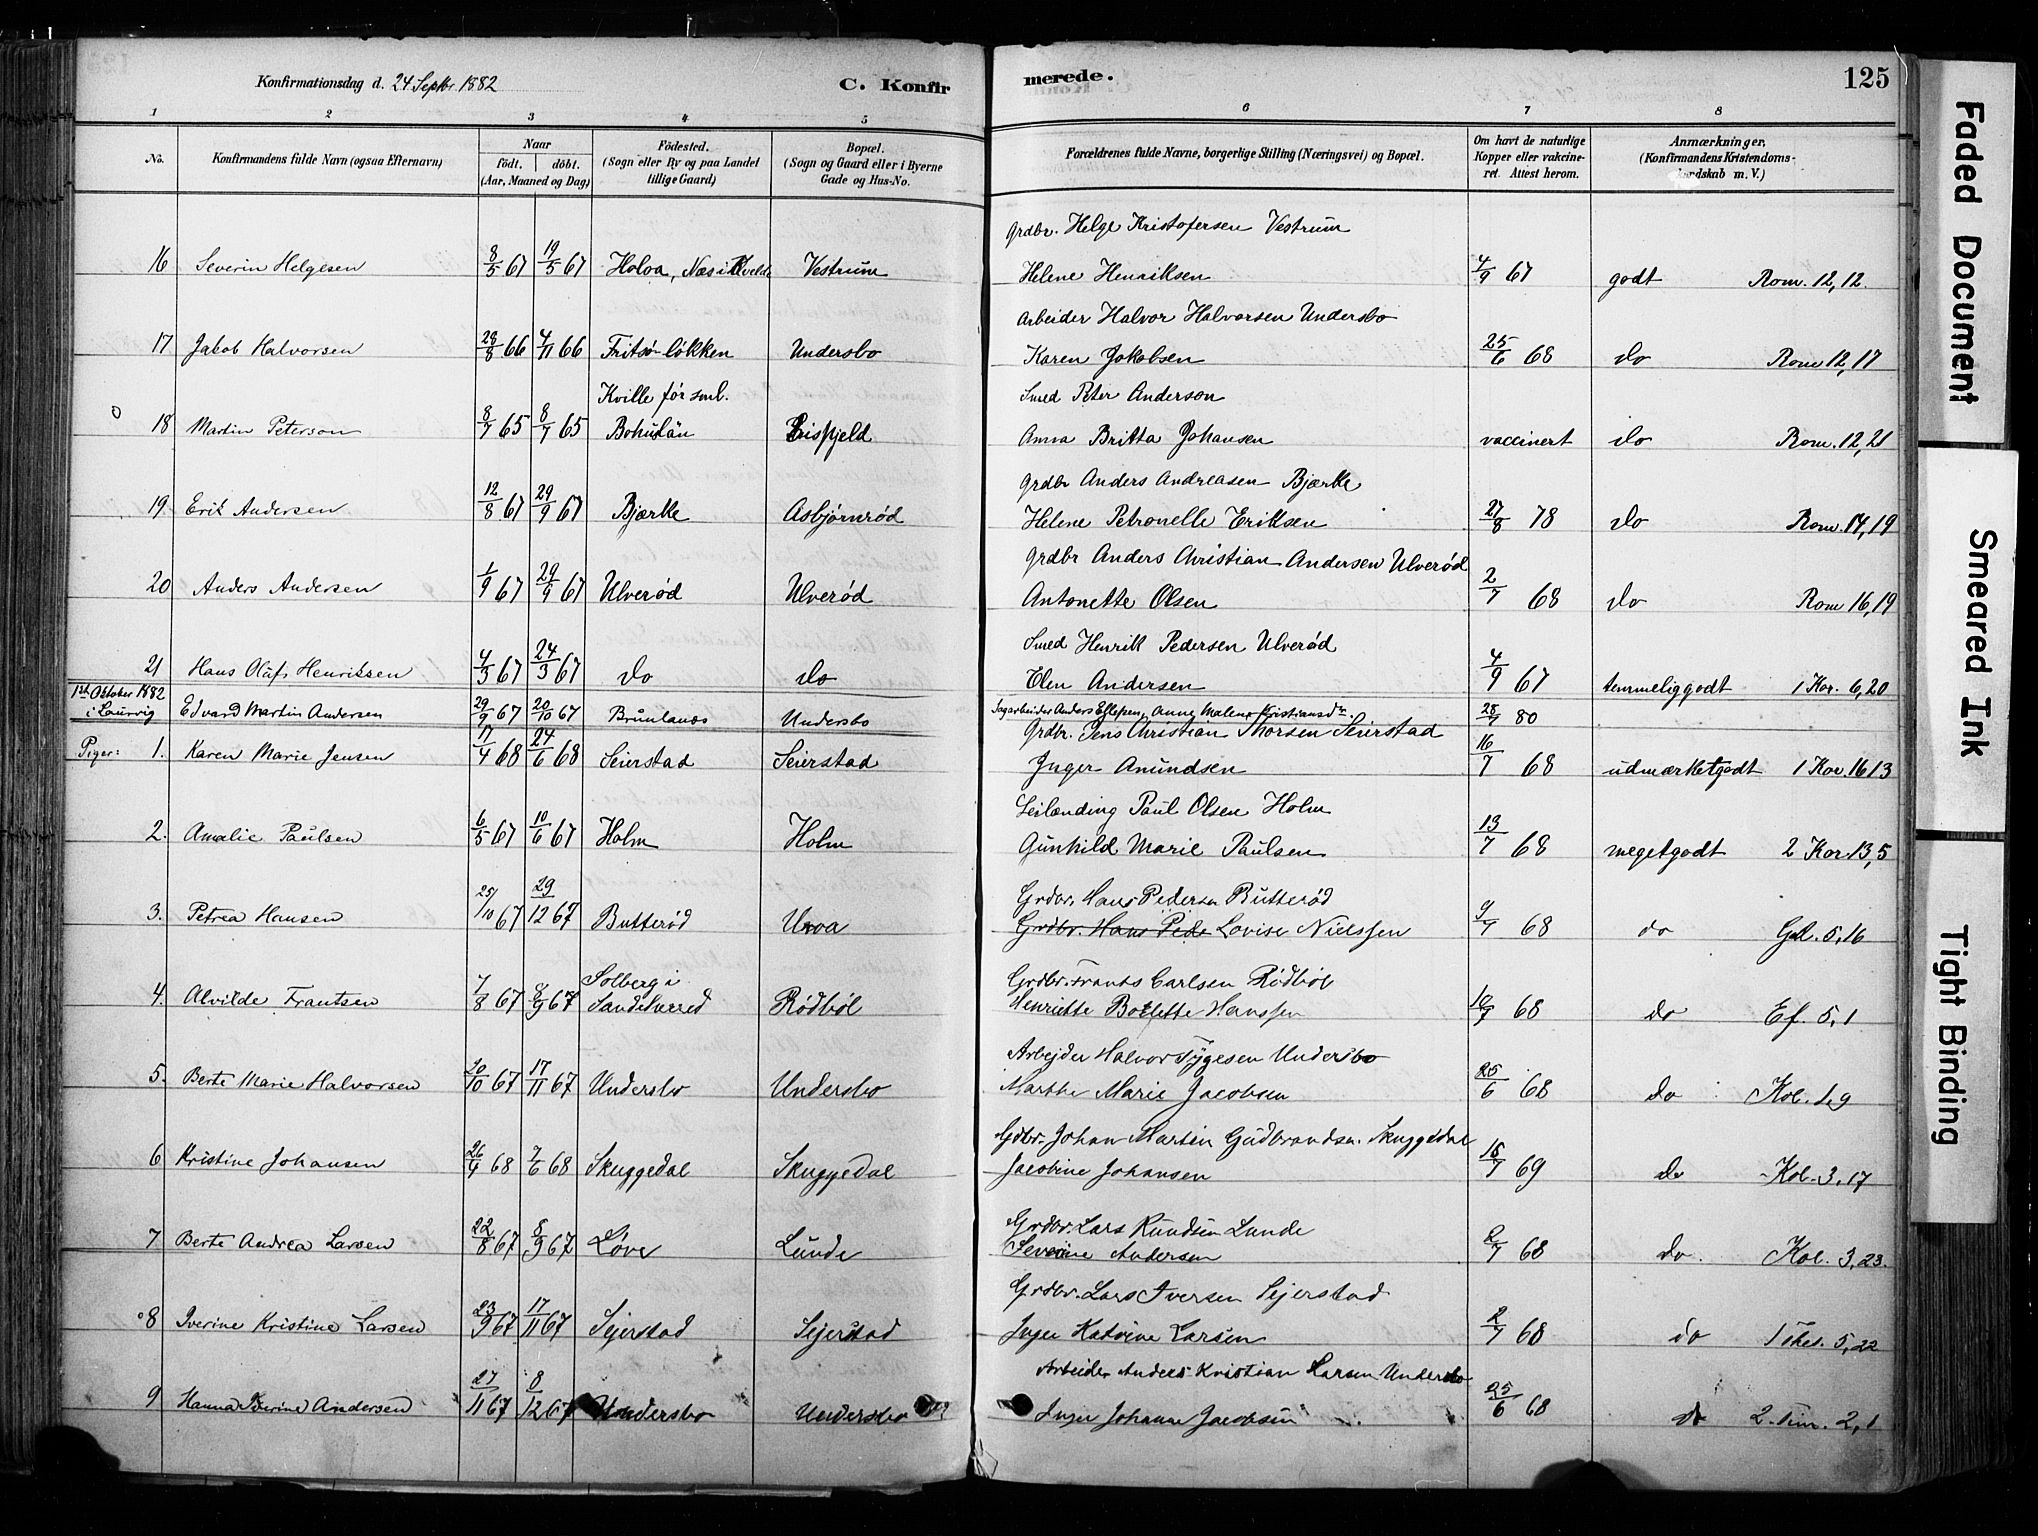 Konfirmationsdag d. 24 Septbr 1882
C. Konfir
merede.
125
1 2 3 4 5 6 7 8
No.
Konfirmandens fulde Navn (ogsaa Efternavn)
Naar
født. døbt.
(Aar, Maaned og Dag)
Fødested.
(Sogn eller By og paa Landet
tillige Gaard)
Bopæl.
(Sogn og Gaard eller i Byerne
Gade og Hus-No.
Forældrenes fulde Navne, borgerlige Stilling (Næringsvei) og Bopæl.
Om havt de naturlige
Kopper eller vakcine-
ret. Attest herom.
Anmærkninger,
(Konfirmandens Kristendoms-
kundskab m. V.)
Grdbr. Helge Kristofersen Vestrum
16 Severin Helgesen 8/5 67 19/5 67 Holoa, Næs i Kveld Vestrum Helene Henriksen 4/9 67 godt Rom. 12,12.
Arbeider Halvor Halvorsen Undersbo
17 Jakob Halvorsen 28/8 66 4/11 66 Fritsø løkken Undersbo Karen Jakobsen 25/6 68 do Rom 12,17
Kville för sml. Smed Peter Anderson
18 Martin Peterson 8/7 65 8/7 65 Bohuslän Anna Britta Johansen vaccinert do Rom. 12,21
Grdbr Anders Andreasen Bjærke
19 Erik Andersen 12/8 67 29/9 67 Bjærke Asbjørnrød Helene Petronelle Eriksen 27/8 78 do Rom. 14,19
Grdbr Anders Christian Andersen Ulverød
20 Anders Andersen 1/9 67 29/9 67 Ulverød Ulverød Antonette Olsen 2/7 68 do Rom 16,19
Smed Henrik Pedersen Ulverød
21 Hans Olaf Henriksen 4/3 67 24/3 67 do do Elen Andersen 4/9 67 temmelig godt 1 Kor. 6,20
1ste Oktober 1882
i Laurvig Edvard Martin Andersen 29/9 67 20/10 67 Brunlanes Undersbo Sagarbeider Anders Ellefsen, Anne Malene Kristiansdr. 28/7 80
Grdbr. Jens Christian Thorsen Seierstad
Piger: 1. Karen Marie Jensen 17/4 68 24/6 68 Seierstad Seierstad Inger Anundsen 16/7 68 udmærket godt 1 Kor. 16 13
Leilænding Paul Olsen Holm
2. Amalie Paulsen 6/5 67 10/6 67 Holm Holm Gunhild Marie Paulsen 13/7 68 meget godt 2 Kor 13,5
Grdbr. Hans Pedersen Butterød
3. Petrea Hansen 25/10 67 29/12 67 Butterød Unoa Grdbr. Hans Pede Lovise Nielssen 9/7 68 do Gal. 5,16
Solberg i Grdbr. Frants Carlsen Rødbøl
4. Alvilde Frantsen 7/8 67 8/9 67 Sandehverred Rødbøl Henriette Bolette Hanssen 10/7 68 do Ef. 5,1
Arbejder Halvor Tygesen Undersbo
5. Berte Marie Halvorsen 20/10 67 17/11 67 Undersbo Undersbo Marthe Marie Jacobsen 25/6 68 do Kol. 1,9
Grdbr. Johan Martin Gudbrandsn. Skuggedal
6 Kristine Johansen 26/4 68 7/6 68 Skuggedal Skuggedal Jacobine Johansen 16/7 69 do Kol. 3,17
Grdbr. Lars Knudsen Lunde
7 Berte Andrea Larsen 22/8 67 8/9 67 Løve Lunde Severine Andersen 2/7 68 do Kol. 3,23.
Grdbr. Lars Iversen Sejerstad
8 Iverine Kristine Larsen 23/9 67 17/11 67 Sejerstad Sejerstad Inger Katrine Larsen 2/7 68 do 1 Thes. 5,22
Arbeider Anders Kristian Larsen Undersbo
9 Hanna Iverine Andersen 27/11 67 8/12 67 Undersbo Undersbo Inger Johanne Jacobsen 25/6 68 do 2. Tim. 2,1
Faded Document
Smeared Ink
Tight Binding